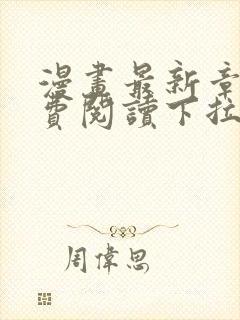 漫畫最新章
費閱讀下拉
周偉思